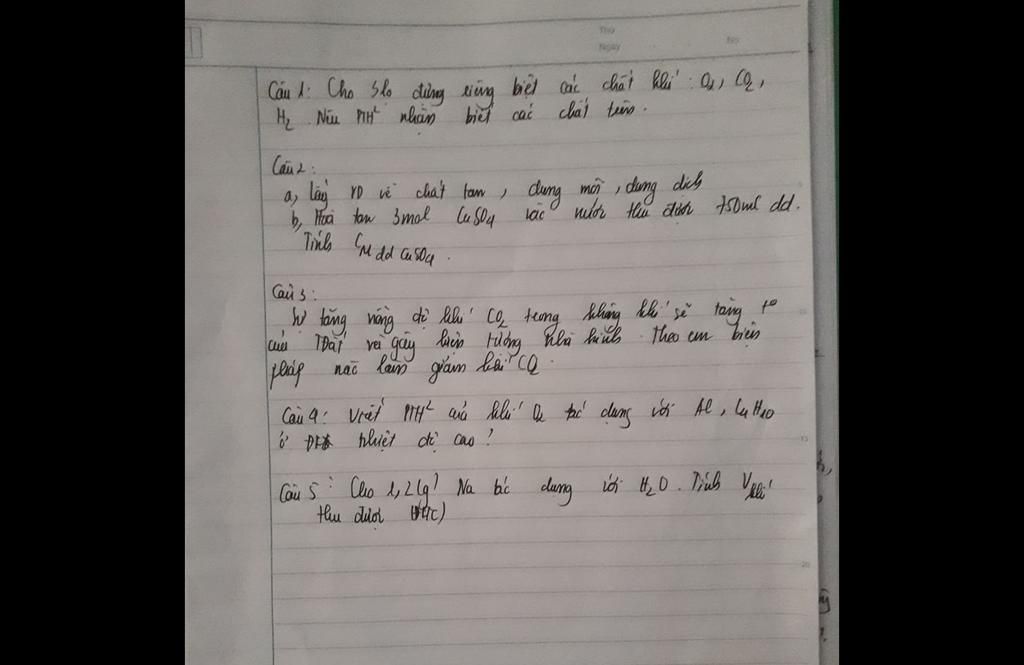 Thứ
Ngày No
Câu 1: Cho 3 lọ đựng riêng biệt các chất khí: O2, CO2,
H2. Nêu PTH² nhận biết các chất trên.
Câu 2:
a, Lấy VD về chất tan, dung môi, dung dịch
b, Hoà tan 3mol CuSO4 vào nước thu được 750ml dd.
Tính CM dd CuSO4.
Câu 3:
Sự tăng nồng độ khí CO2 trong không khí sẽ tăng t°
của TĐất và gây hiện tượng nhà kính. Theo em biện
pháp nào làm giảm khí CO2.
Câu 4: Viết PTH² của khí O2 tác dụng với Al, C4H10
ở nhiệt độ cao?
Câu 5: Cho 1,2(g) Na tác dụng với H2O. Tính Vkhí
thu được